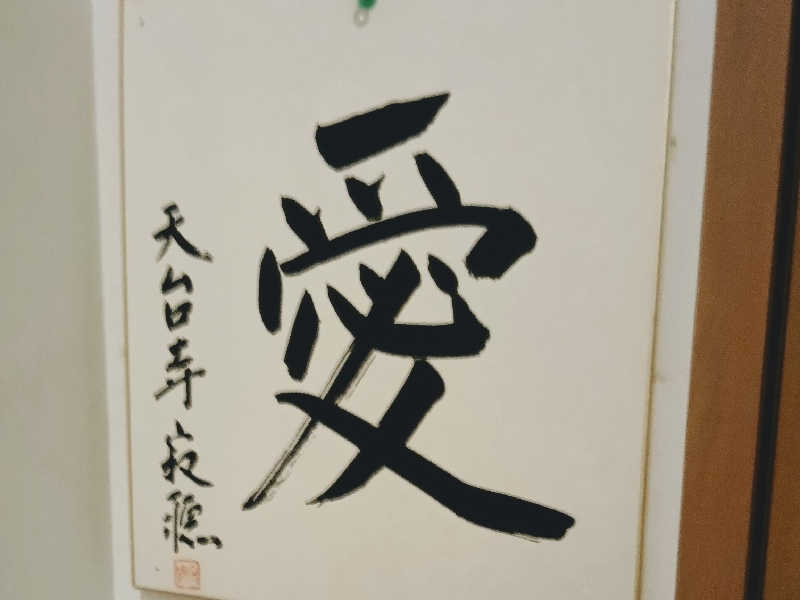 愛
天台寺 寂聴